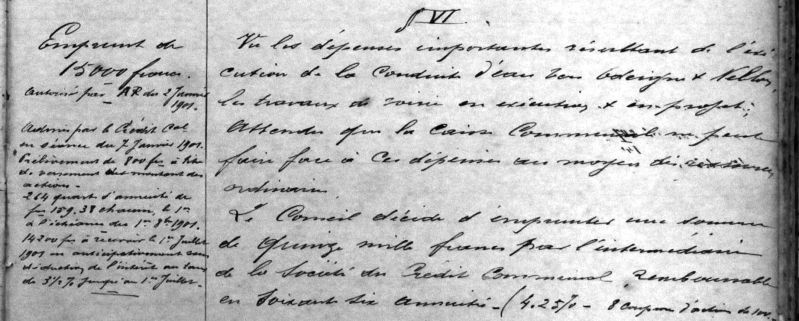 § VI
Emprunt de
15000 francs.
Autorisé par AR du 2 Janvier
1901.
Admis par le Crédit Cal
en séance du 7 Janvier 1901.
Prélèvement de 800 frs à titre
de versement du montant des
actions.
264 quart d'annuité de
frs 159.38 chacun, le 1er
à l'échéance du 1er 8bre 1901.
14200 frs à recevoir le 1er Juillet
1901 ou anticipativement sous
déduction de l'intérêt au taux
de 3½% jusqu'au 1er Juillet.
Vu les dépenses importantes résultant de l'exé
cution de la conduite d'eau
les travaux de voirie en exécution & en projet;
Attendu que la caisse Communale ne peut
faire face à ces dépenses au moyen des ressources
ordinaires.
Le Conseil décide d'emprunter une somme
de quinze mille francs par l'intermédiaire
de la Société du Crédit Communal, remboursable
en soixante six annuités - (4.25% - 8 coupons d'action de 100.